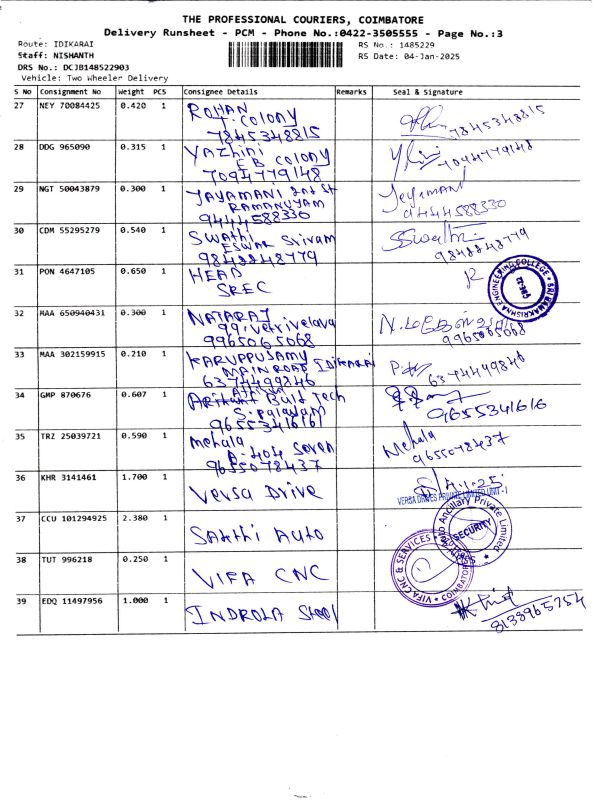 THE PROFESSIONAL COURIERS, COIMBATORE
Delivery Runsheet - PCM - Phone No.:0422-3505555 - Page No.:3
Route: IDIKARAI
RS No.: 1485229
Staff: NISHANTH
RS Date: 04-Jan-2025
DRS No.: DCJB148522903
Vehicle: Two Wheeler Delivery
S No Consignment No Weight PCS Consignee Details Remarks Seal & Signature
27 NEY 70084425 0.420 1 ROHAN
T. COLONY
7845348815 7845348815
28 DDG 965090 0.315 1 YAZHINI
EB COLONY
7094779148 7094779148
29 NGT 50043879 0.300 1 JAYAMANI 2nd St Jeyamani
RAMANUYAM
9444588330 9444588330
30 CDM 55295279 0.540 1 Swathi SSwathi
ESWAR Srivam
9848848779 9848848779
31 PON 4647105 0.650 1 HEAD
SREC
SRI RAMAKRISHNA ENGINEERING COLLEGE
32 MAA 650940431 0.300 1 NATARAJ
99, vetrivelava
9965065068 9965065068
33 MAA 302159915 0.210 1 KARUPPUSAMY
MAIN ROAD IDIKARAI
6374499846 6374499846
34 GMP 870676 0.607 1 Arihant Build Tech
S. Palayam
9655341616 9655341616
35 TRZ 25039721 0.590 1 mehala Mehala
A-404 Seven
9655078437 9655078437
36 KHR 3141461 1.700 1 Versa Drive 4.1.25
VERSA DRIVES PRIVATE LIMITED UNIT - I
37 CCU 101294925 2.380 1 SAkthi Auto
Auto Ancillary Private Limited
SECURITY
38 TUT 996218 0.250 1 VIFA CNC
VIFA CNC & SERVICES * COIMBATORE
39 EDQ 11497956 1.000 1 INDROLA Steel
8138965754